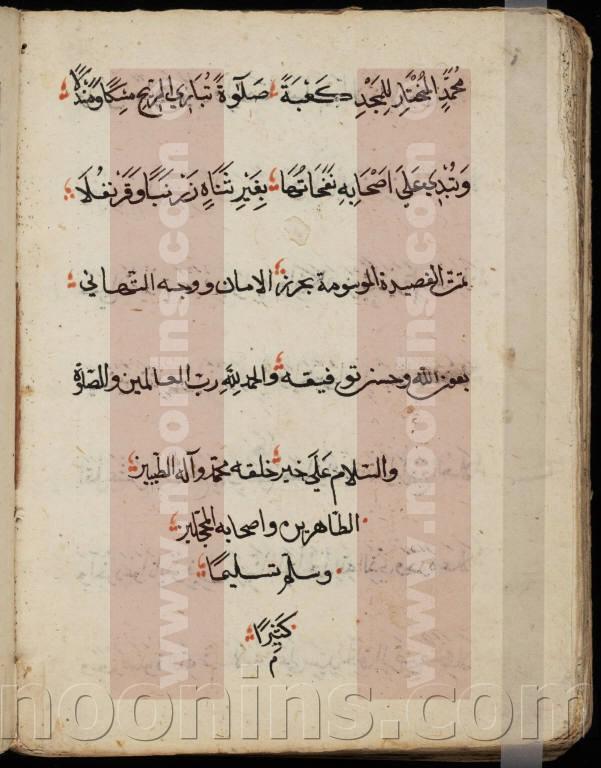 مُحَمَّدٍ المُخْتَارِ لِلمَجْدِ كَعْبَةً صَلَوةً تُبَارِي الرِّيحَ مِسْكًا وَمَنْدَلًا
وَتُبْدِي عَلَى اَصْحَابِهِ نَفَحَاتُهَا بِغَيْرِ تَنَاهٍ زَرْنَبًا وَقَرَنْفُلَا
تمت القصيدة الموسومة بحرز الامان ووجه التهاني
بعون الله وحسن توفيقه والحمد لِلّهِ ربّ العالمين والصّلوة
والسّلام عَلَى خير خلقه محمّد وآله الطّيبين
الطّاهرين واصحابه
وسلّم تسليمًا
كَثِيرًا
م
www.noonins.com
www.noonins.com
noonins.com